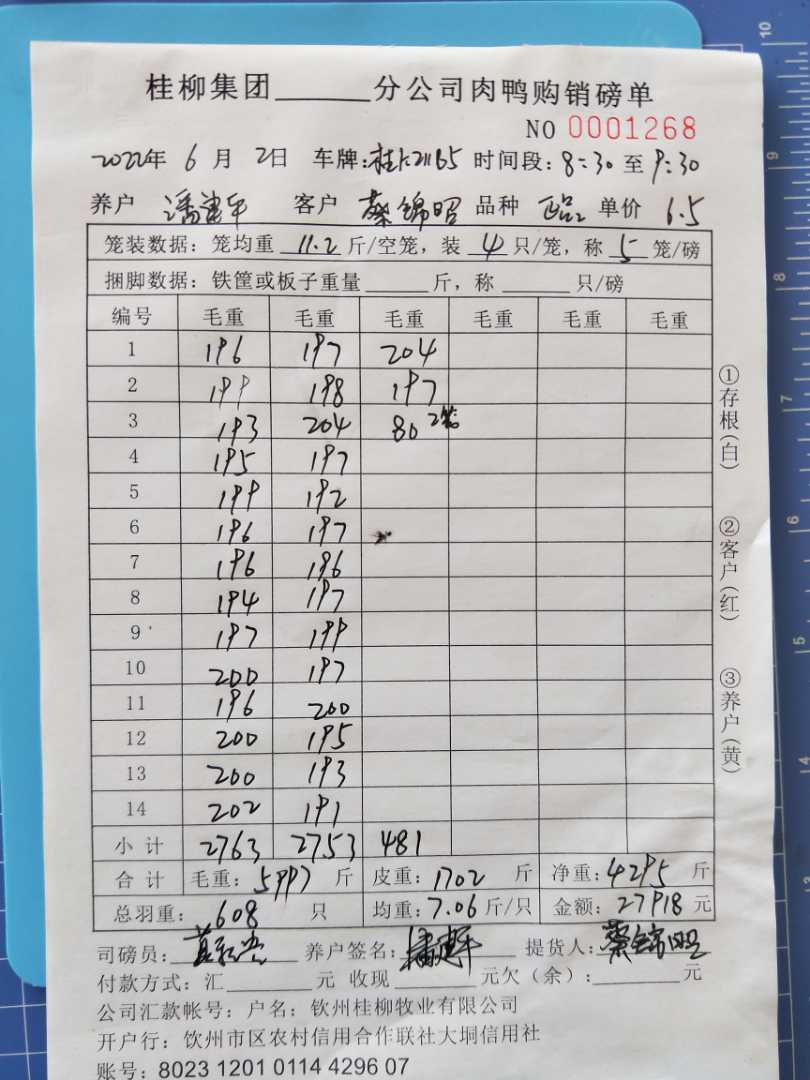 桂柳集团______分公司肉鸭购销磅单
NO 0001268
2022年 6 月 2日 车牌: 时间段: 8:30 至 9:30
养户 潘建平 客户 蔡锦昭 品种 单价 6.5
笼装数据: 笼均重 11.2 斤/空笼, 装 4 只/笼, 称 5 笼/磅
捆脚数据: 铁筐或板子重量______斤, 称______只/磅
编号 毛重 毛重 毛重 毛重 毛重 毛重
1 196 197 204
2 199 198 197
3 193 204 80 2笼
4 195 197
5 199 192
6 196 197
7 196 196
8 194 197
9 197 199
10 200 197
11 196 200
12 200 195
13 200 193
14 202 191
小计 2763 2753 481
合计 毛重: 5997 斤 皮重: 1702 斤 净重: 4295 斤
总羽重: 608 只 均重: 7.06 斤/只 金额: 27918 元
司磅员: 养户签名: 潘建平 提货人: 蔡锦昭
付款方式: 汇______元 收现______元欠(余):______元
公司汇款帐号: 户名: 钦州桂柳牧业有限公司
开户行: 钦州市区农村信用合作联社大垌信用社
账号: 8023 1201 0114 4296 07
①存根(白)
②客户(红)
③养户(黄)
10
9
8
7
6
5
14